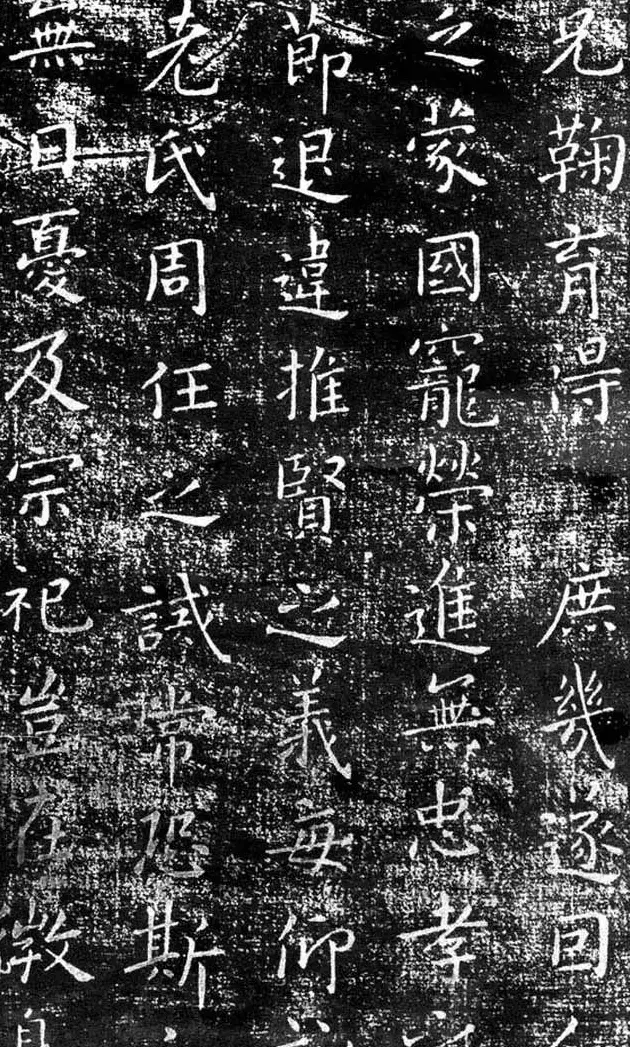 兄鞠育得庶幾遂因
之蒙國寵榮進無忠孝
節退違推賢之義每仰
老氏周任之誡常恐斯
無日憂及宗祀豈在微身